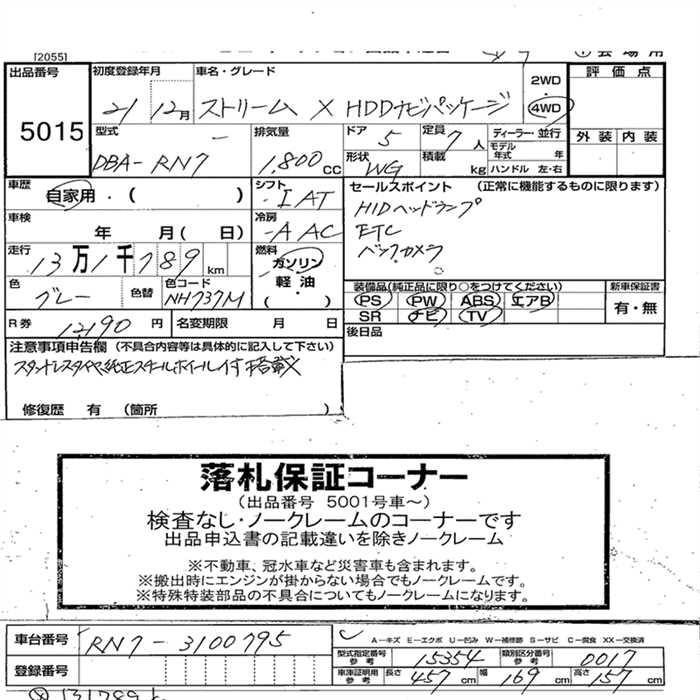 [2055]
出品番号 初度登録年月 車名・グレード 2WD 評価点
5015 21 12月 ストリーム X HDDナビパッケージ 4WD
型式 排気量 ドア 定員 ディーラー・並行 外装 内装
DBA-RN7 1,800CC 5 7人 モデル年式 年
形状 WG 積載 kg ハンドル 左・右
車歴 シフト セールスポイント (正常に機能するものに限ります)
自家用・( ) IAT HIDヘッドランプ
車検 年 月( 日) 冷房 AAC ETC
走行 13万1千789km 燃料 ガソリン バックカメラ
軽油・
( )
色 グレー 色替 色コード NH737M 装備品(純正品に限り○をつけてください) 新車保証書
PS PW ABS エアB 有・無
SR ナビ TV
R券 12,190円 名変期限 月 日 後日品
注意事項申告欄(不具合内容等は具体的に記入して下さい)
スタッドレスタイヤ、純正スチールホイール付 搭載
修復歴 有 (箇所 )
落札保証コーナー
(出品番号 5001号車~)
検査なし・ノークレームのコーナーです
出品申込書の記載違いを除きノークレーム
※不動車、冠水車など災害車も含まれます。
※搬出時にエンジンが掛からない場合でもノークレームです。
※特殊特装部品の不具合についてもノークレームになります。
車台番号 RN7-3100795 A-キズ E-エクボ U-凹み W-補修跡 S-サビ C-腐食 XX-交換済
型式指定番号参考 15354 類別区分番号参考 0017
登録番号 車庫証明用参考 長さ 457cm 幅 169cm 高さ 157cm
131789k